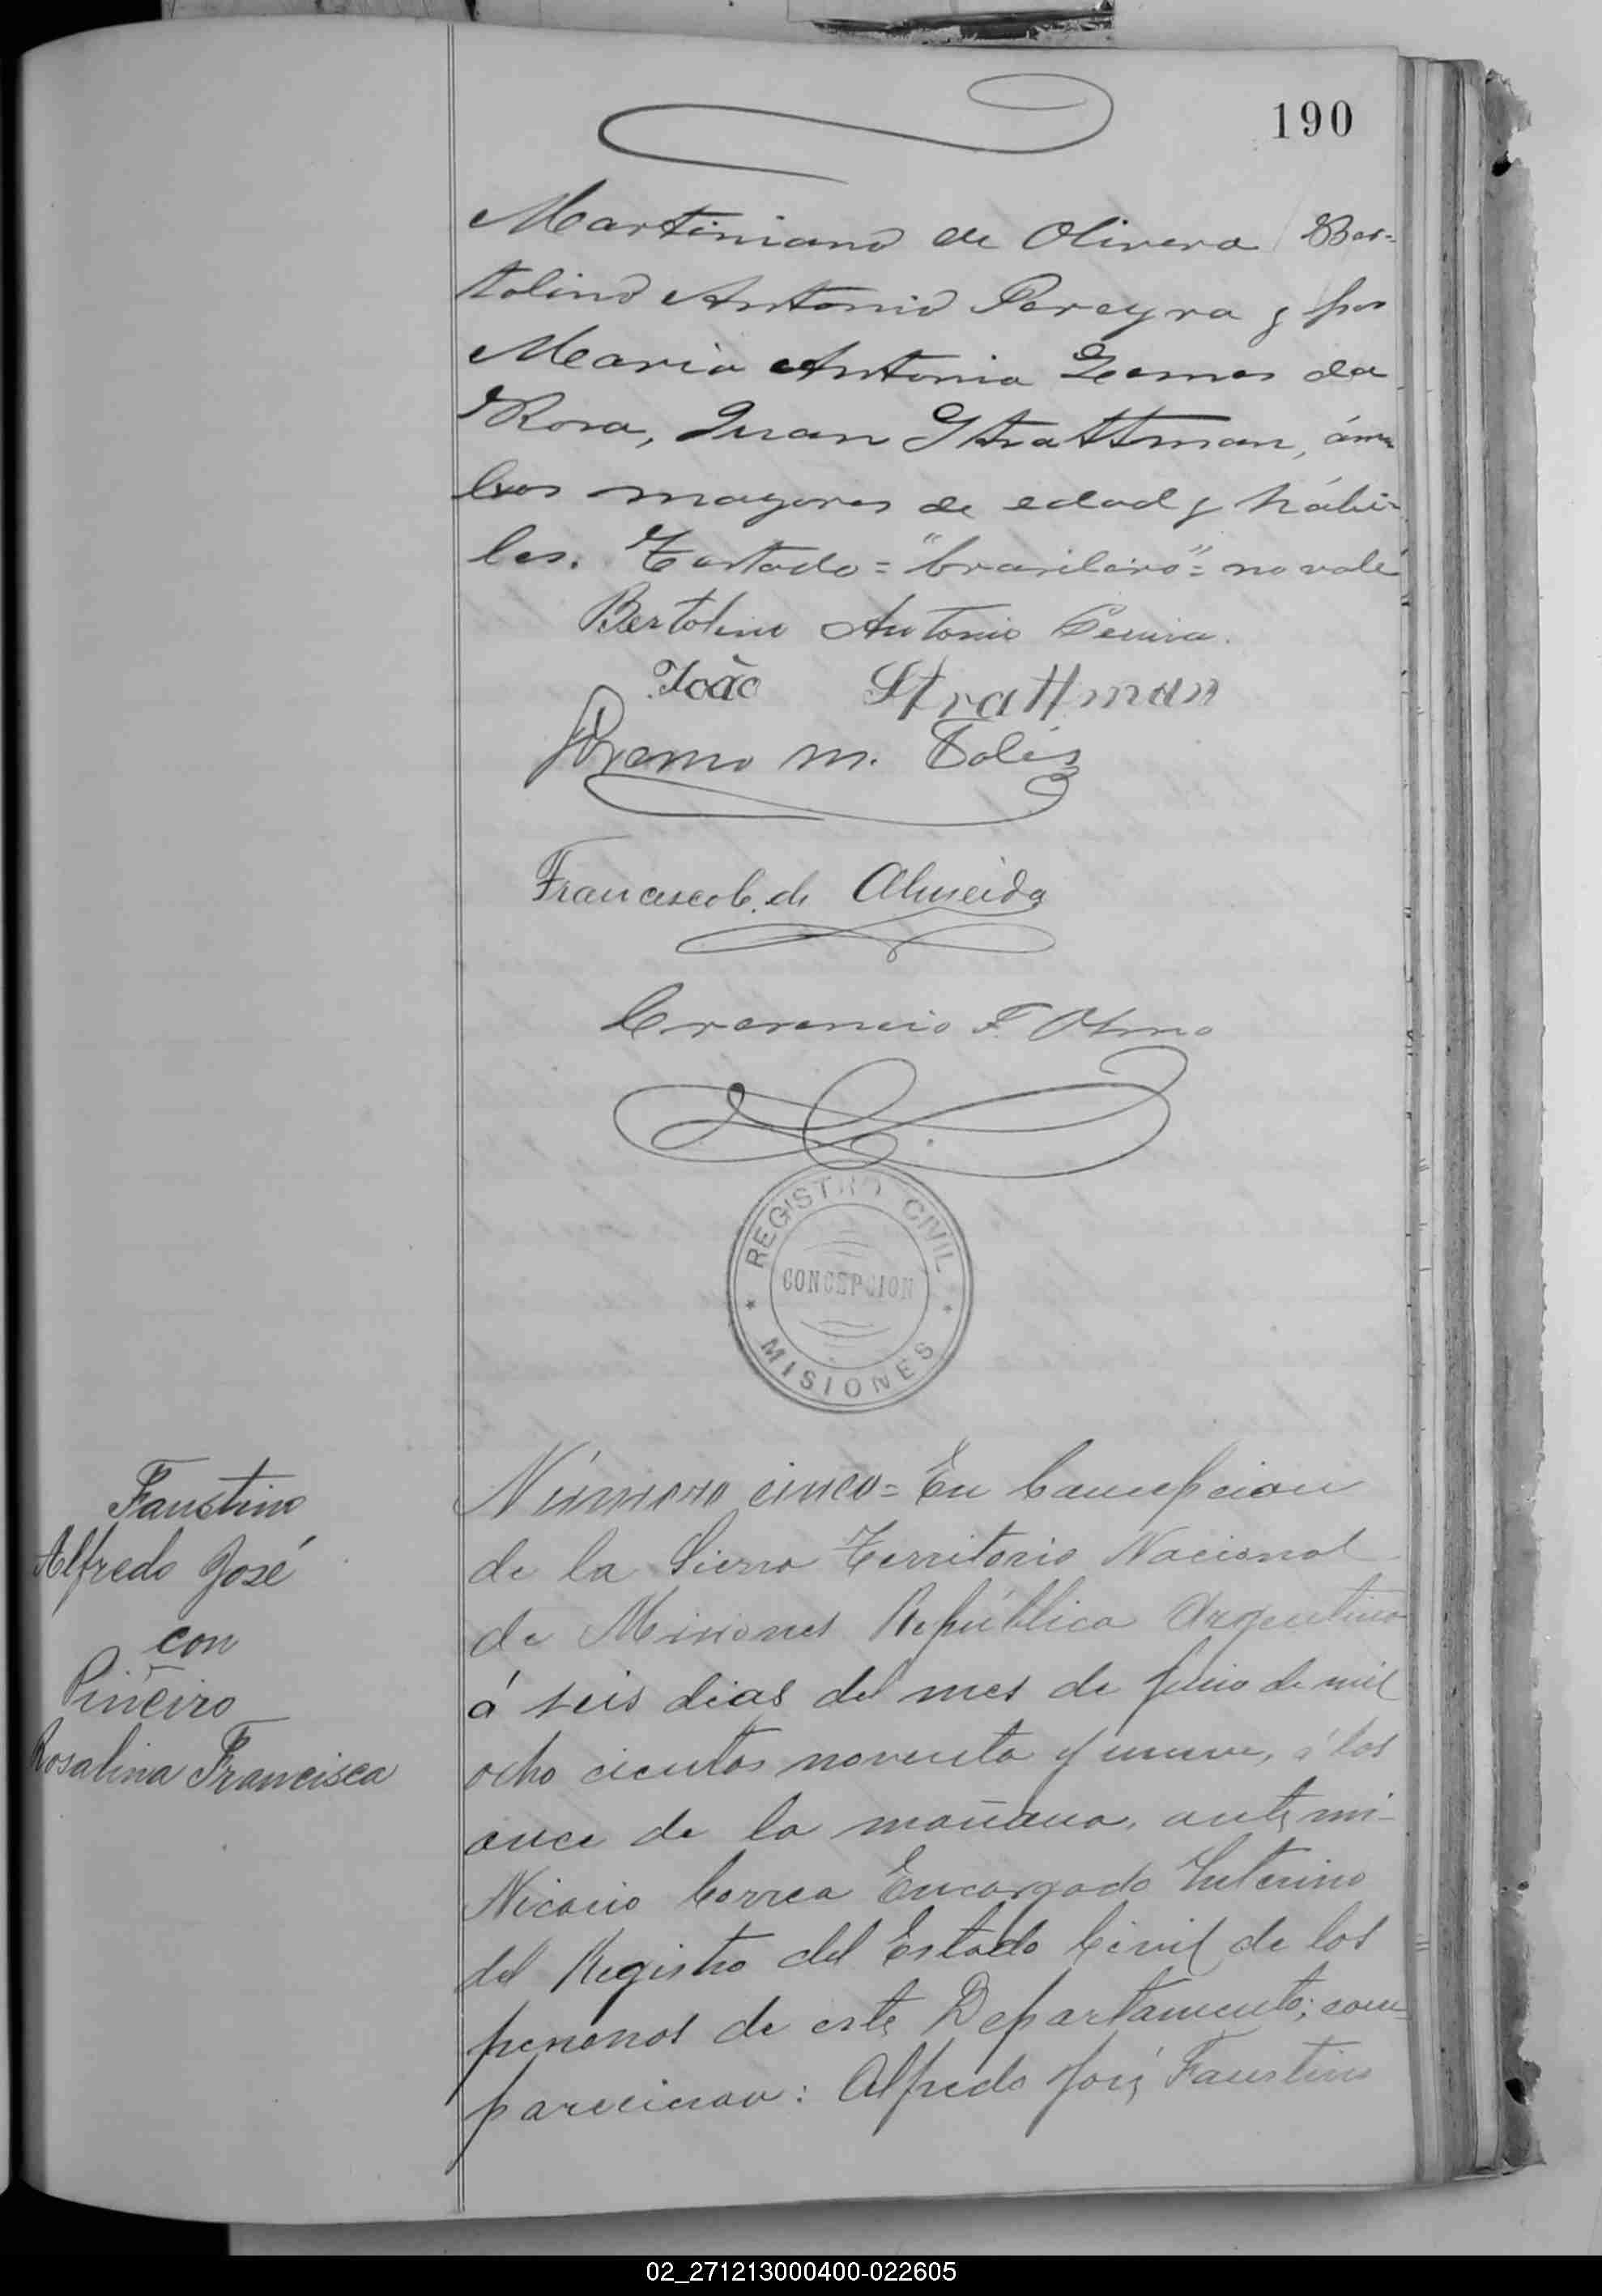 190
Martiniano de Olivera Ber-
tolino Antonio Pereyra y por
Maria Antonia Gomes da
Rosa, Juan Strattman, ám
bos mayores de edad y hábi-
les. Testado = "brasilero" = no vale
Bertolino Antonio Pereira.
João Strattman
m. Solis
Francisco C. de Almeida
Crecencio F. Olmo
REGISTRO CIVIL
CONCEPCION
MISIONES
Faustino
Alfredo José
con
Piñeiro
Rosalina Francisca
Número cinco = En Concepcion
de la Sierra Territorio Nacional
de Misiones República Argentina
á seis dias del mes de de mil
ocho cientos noventa y nueve, á las
once de la mañana, ante mi
Nicasio Correa Encargado Interino
del Registro del Estado Civil de las
personas de este Departamento; com-
parecieron: Alfredo José Faustino
02_271213000400-022605